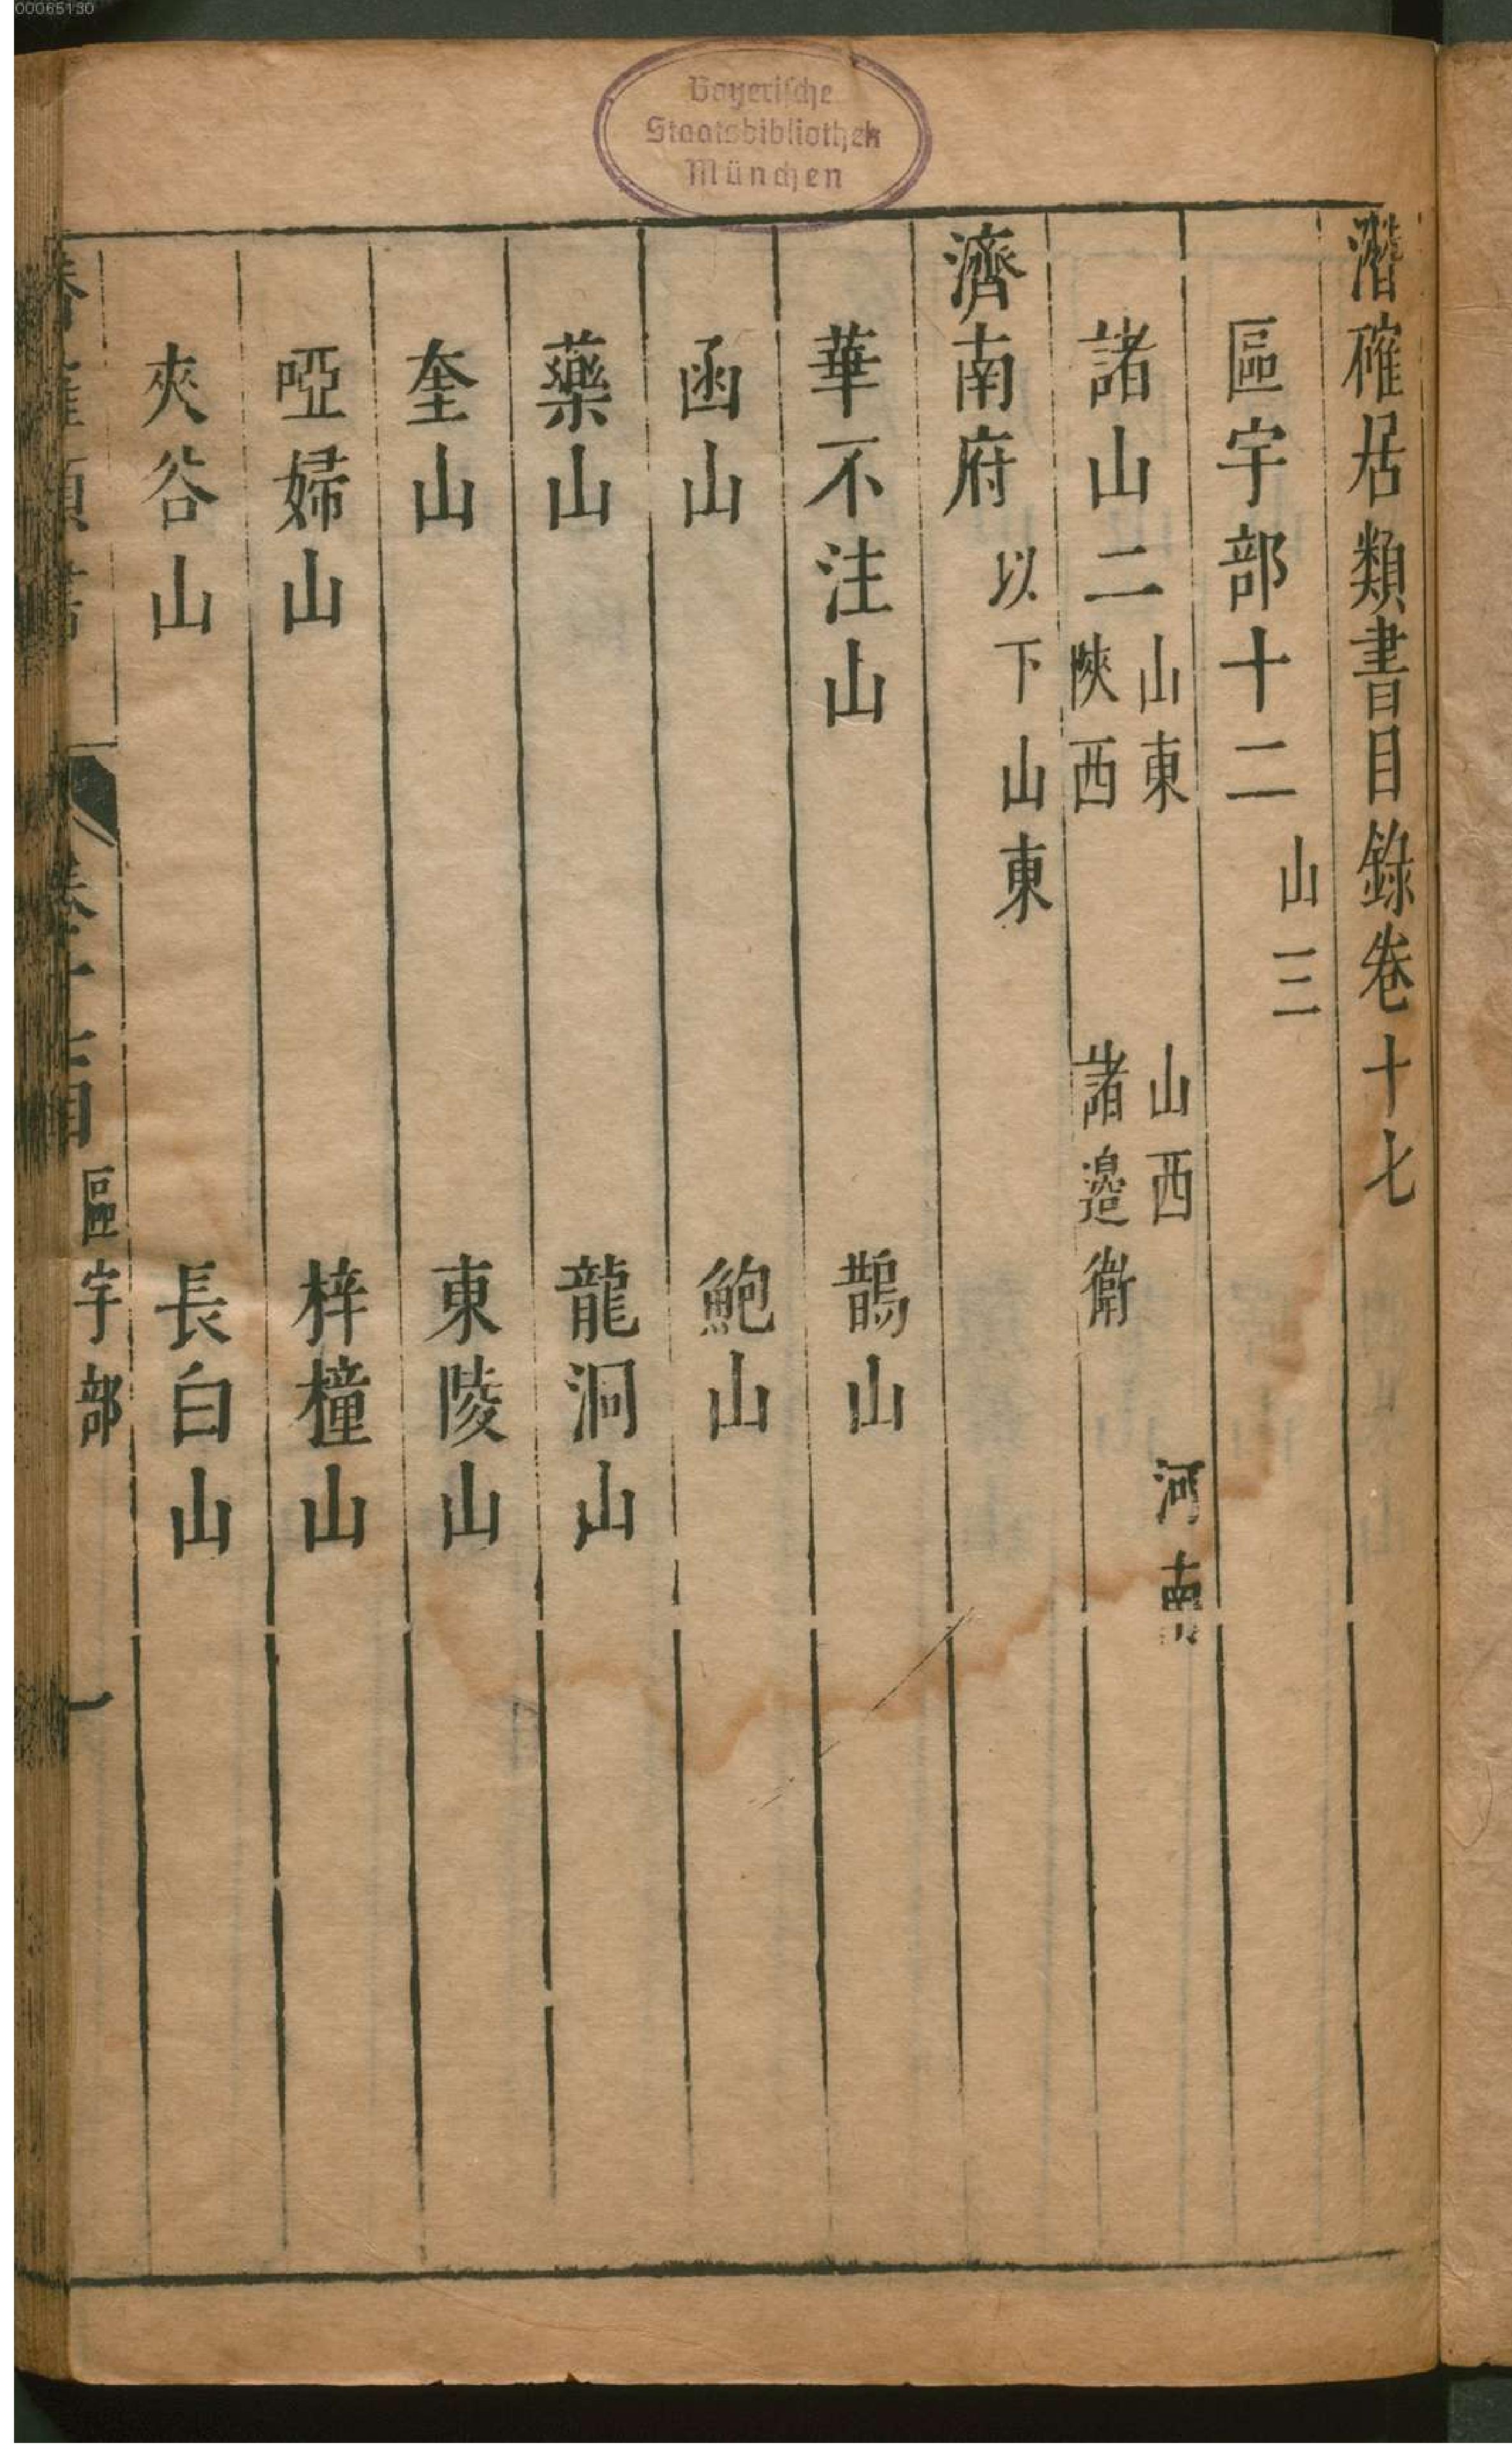 00065130
Bayerische
Staatsbibliothek
München
潛確居類書目錄卷十七
區宇部十二 山三
諸山二 山東 山西 河南
陝西 諸邉衛
濟南府 以下山東
華不注山 鵲山
函山 鮑山
藥山 龍洞山
奎山 東陵山
啞婦山 梓橦山
夾谷山 長白山
區宇部 一